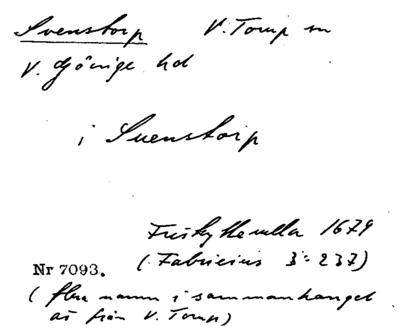 Svenstorp V. Torup sn
V. Göinge hd
i Svenstorp
Friskytterulla 1679
Nr 7093. (Fabricius 3:237)
(flera namn i sammanhanget
är från V. Torup)